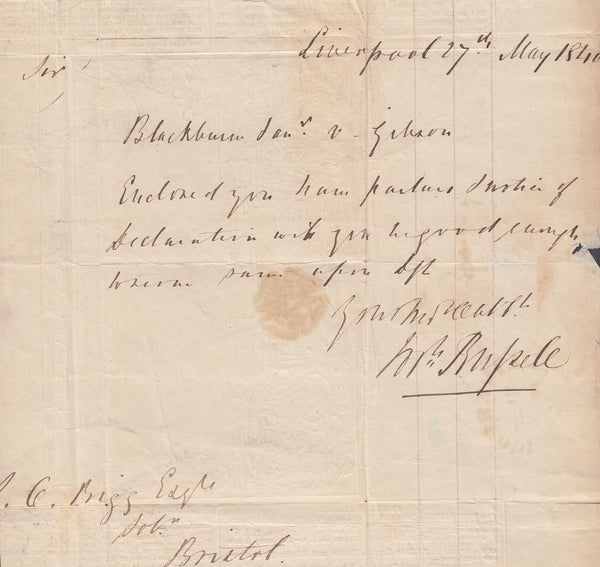 Liverpool 27th May 1840
Sir
Blackburn Janr. v. Gibson
Enclosed you have Notice of
Declaration will you be good enough
to serve same upon Dft
Your
Russell
C. Bigg Esqre
Solr
Bristol.